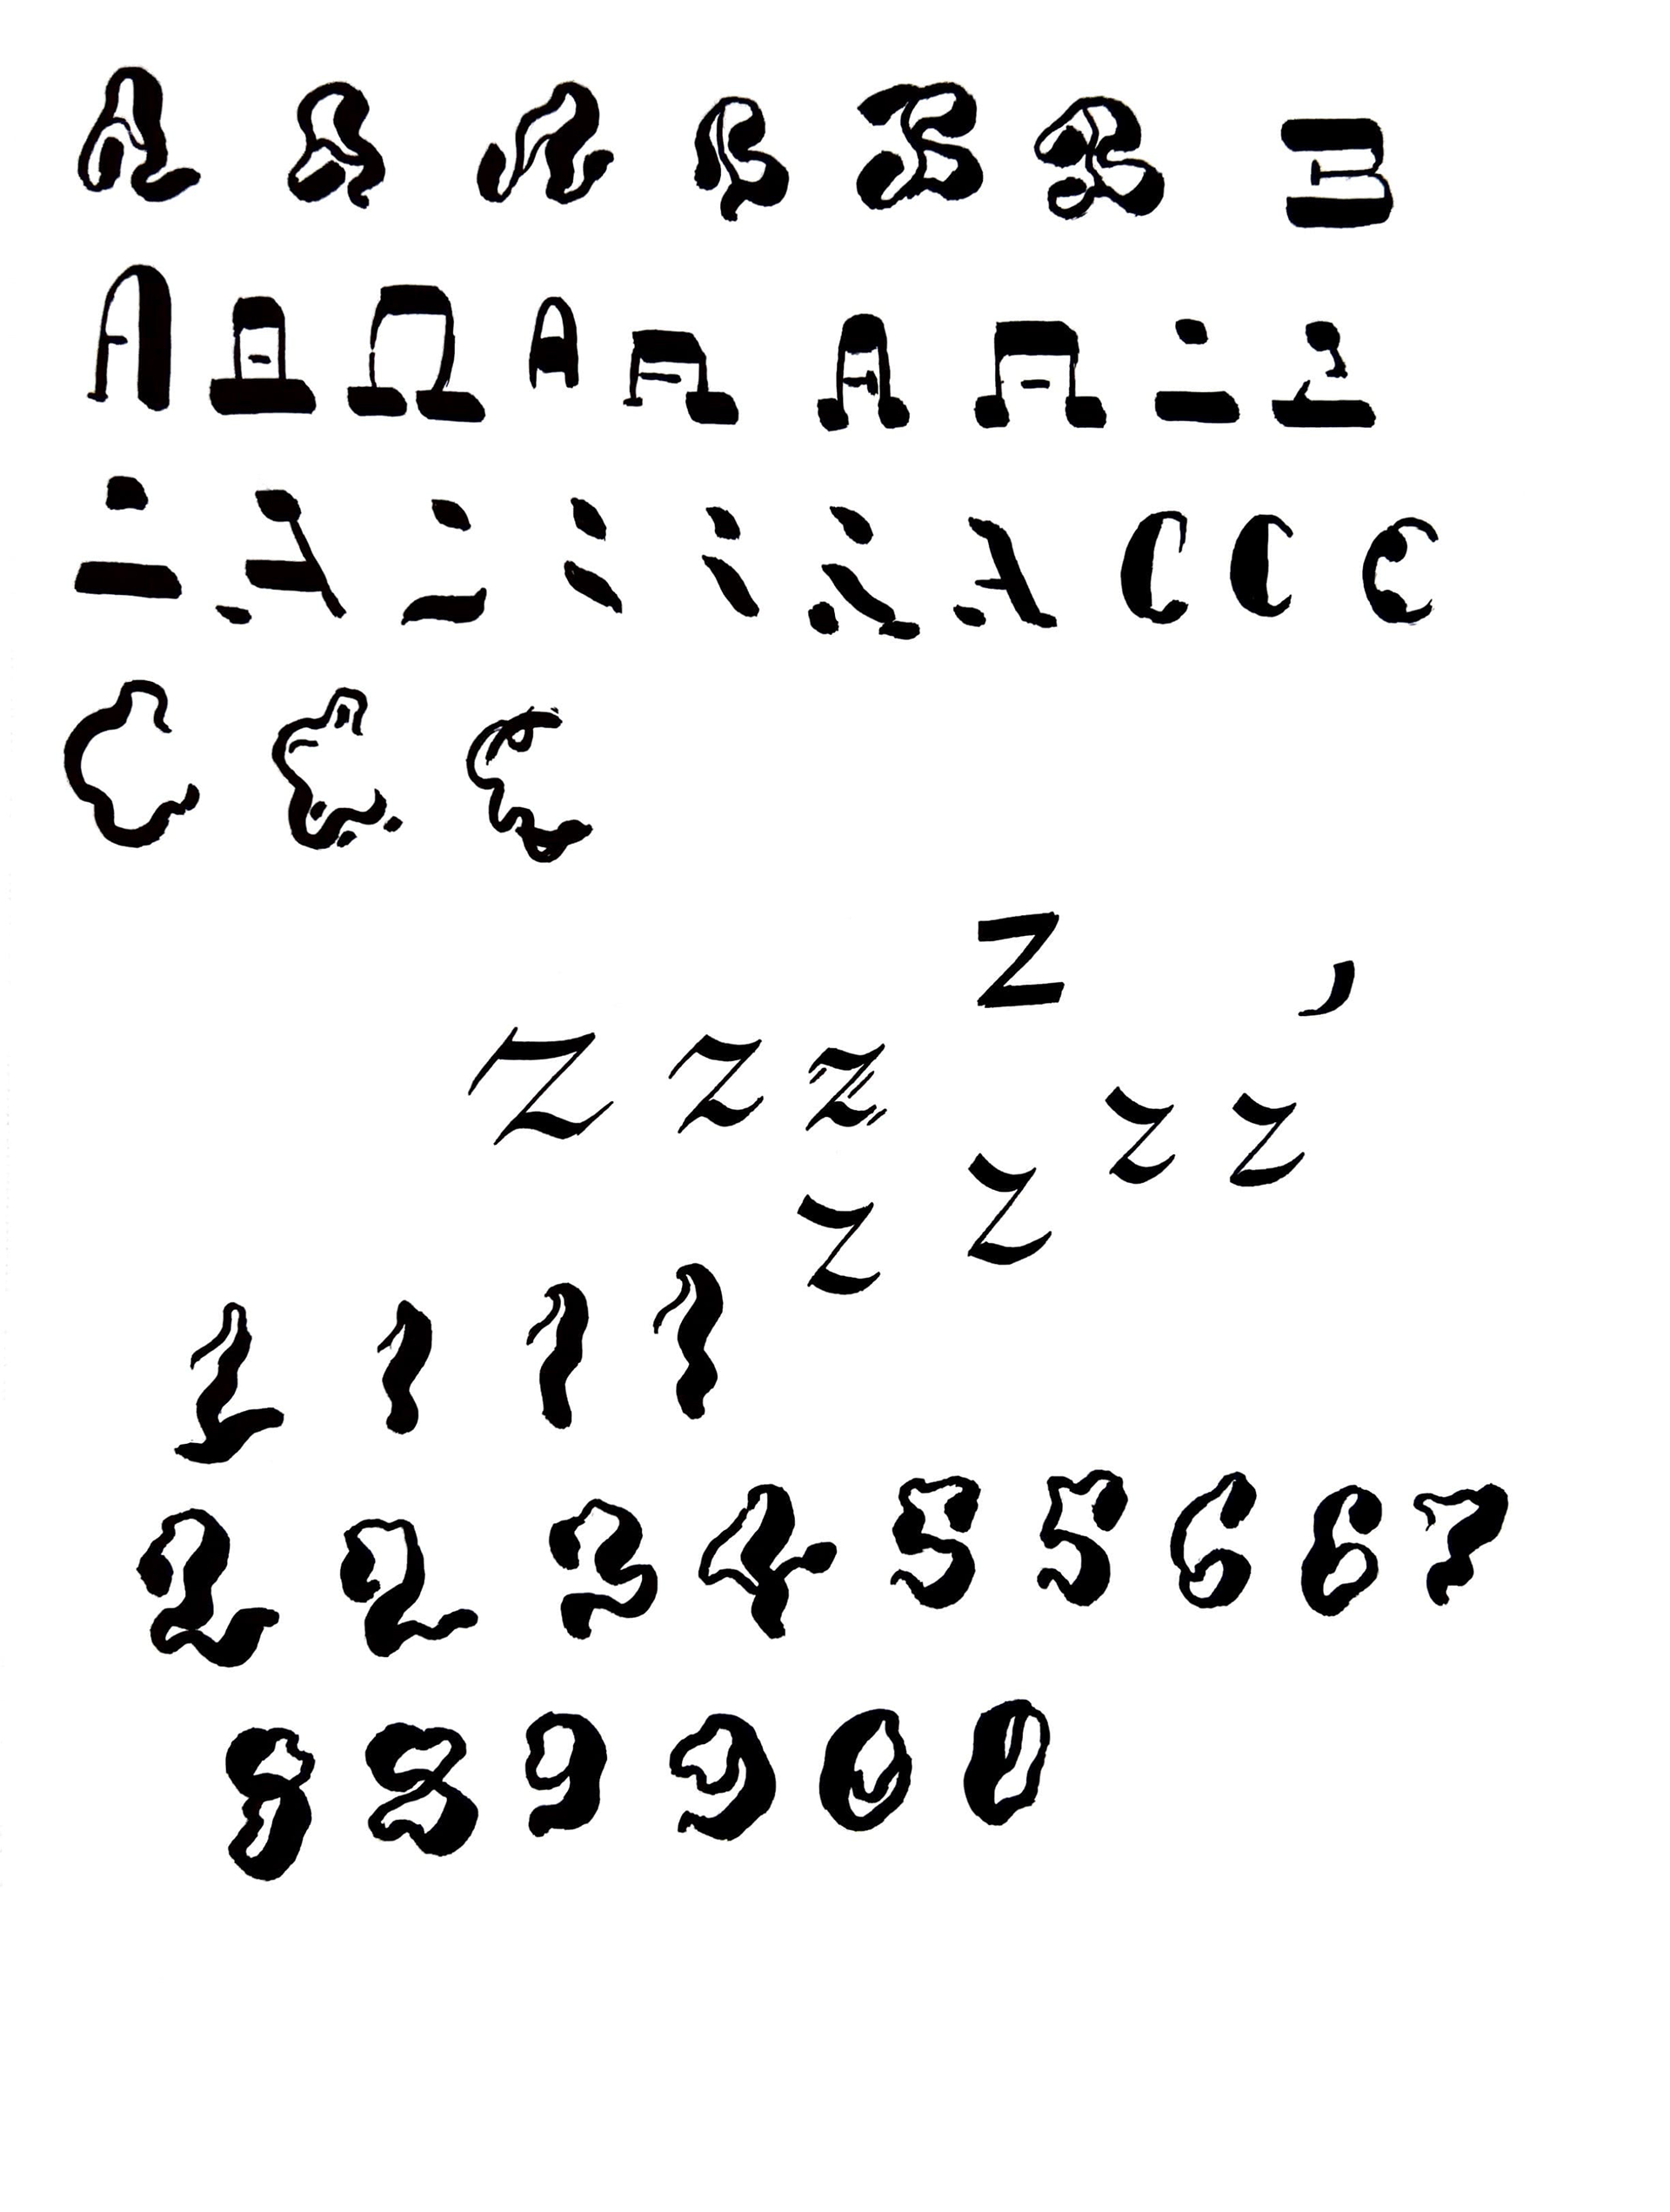 A A A B B B B
A A A A A A A
A A C C C
C C C
Z ,
Z Z Z Z Z
Z Z
1 1 1 1
2 2 2 4 5 5 6 6 7
8 8 9 9 0 0